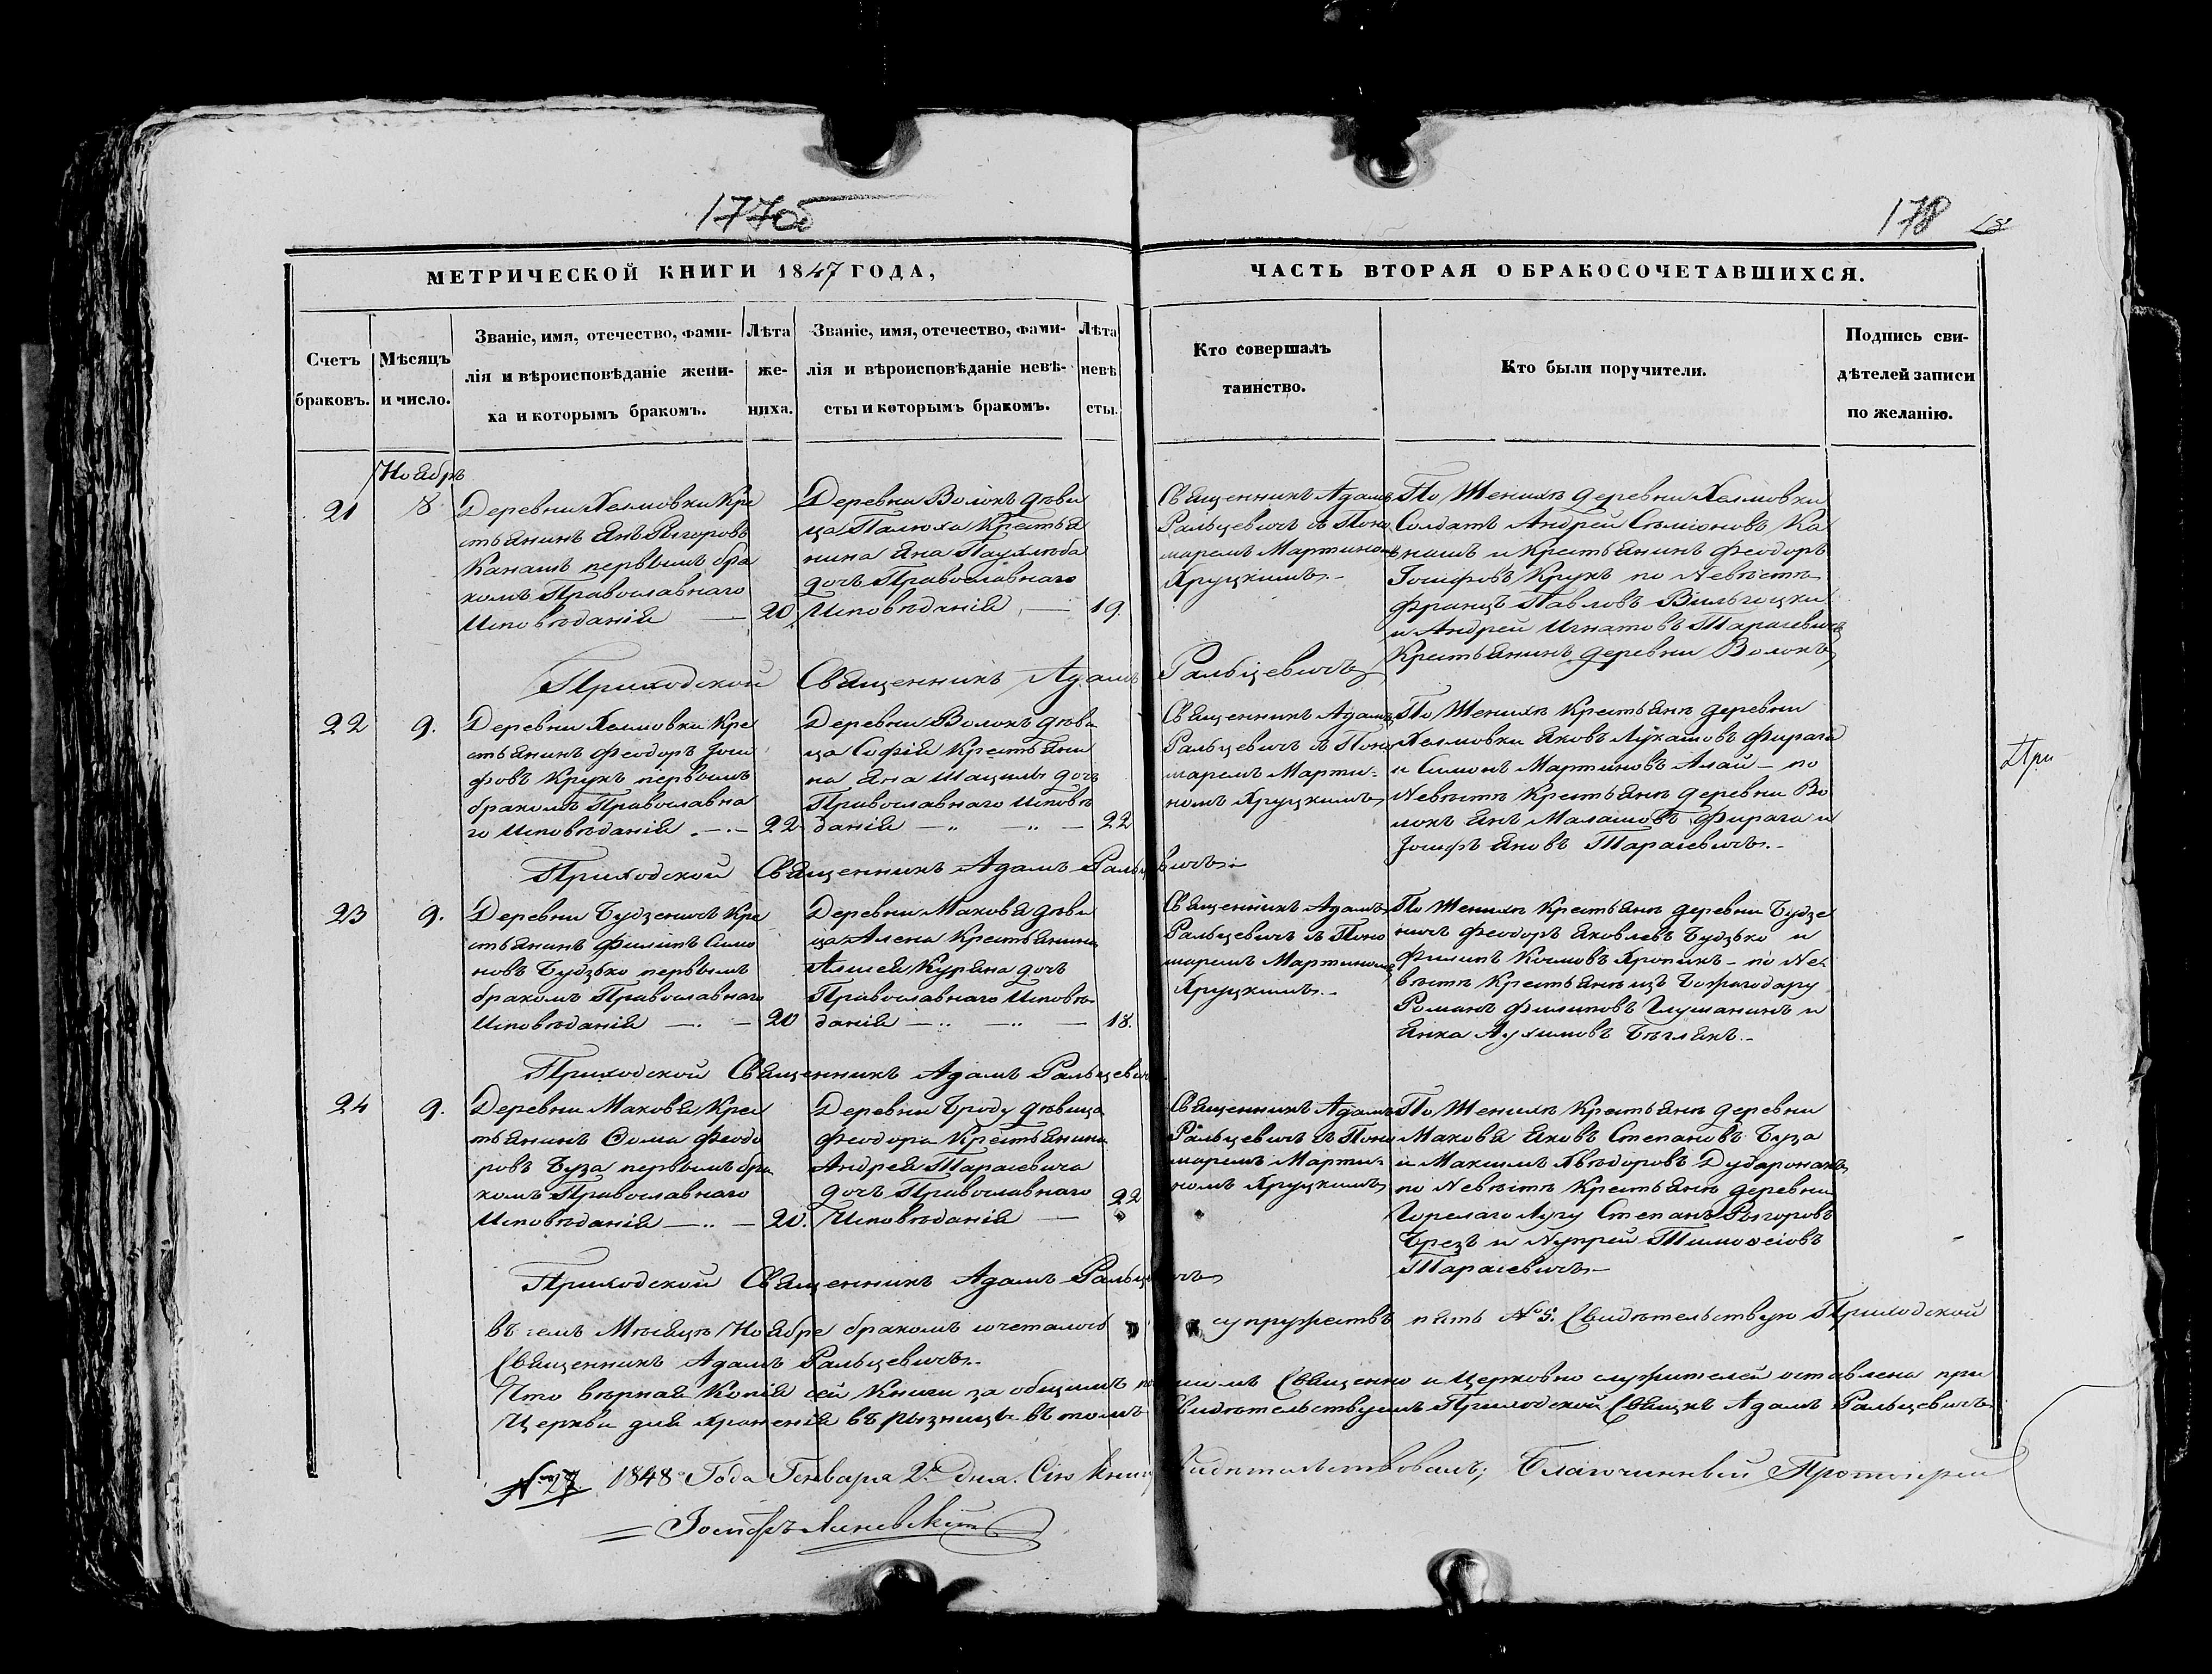 177об
178
МЕТРИЧЕСКОЙ КНИГИ 1847 ГОДА,
ЧАСТЬ ВТОРАЯ О БРАКОСОЧЕТАВШИХСЯ.
Счетъ
браковъ.
Мѣсяцъ
и число.
Званіе, имя, отечество, фами-
лія и вѣроисповѣданіе жени-
ха и которымъ бракомъ.
Лѣта
же-
ниха.
Званіе, имя, отечество, фами-
лія и вѣроисповѣданіе невѣ-
сты и которымъ бракомъ.
Лѣта
невѣ
сты.
Кто совершалъ
таинство.
Кто были поручители.
Подпись сви-
дѣтелей записи
по желанію.
Ноябрь
21
8
Деревни Хелмовки Кре
стьянинъ Янъ Рыгоровъ
Канашъ первымъ бра
комъ Православнаго
Исповѣданія
20
Деревни Волокъ дѣви
ца Палюха Крестья
нина Яна Паухлѣба
дочь Православнаго
Исповѣданія
19
Священникъ Адамъ
Ральцевичъ съ Поно
маремъ Мартиномъ
Хруцкимъ.
По Женихѣ деревни Хелмовки
Солдатъ Андрей Сымоновъ Ка
нашъ и Крестьянинъ Феодоръ
Іосифовъ Крукъ по Невѣстѣ
Францъ Павловъ Вильгоцки
и Андрей Игнатовъ Тарасевичъ
Крестьянинъ деревни Волокъ
Приходской Священникъ Адамъ Ральцевичъ
22
9.
Деревни Хелмовки Кре
стьянинъ Феодоръ Іоси
фовъ Крукъ первымъ
бракомъ Православна
го Исповѣданія
22
Деревни Волокъ дѣви
ца Софія Крестьяни
на Яна Шацилы дочь
Православнаго Исповѣ
данія
22
Священникъ Адамъ
Ральцевичъ съ Поно
маремъ Марти-
номъ Хруцкимъ
По Женихѣ Крестьяне деревни
Хелмовки Яковъ Лукашовъ Фирага
и Симонъ Мартиновъ Алай — по
Невѣстѣ Крестьяне деревни Во
локъ Янъ Малашовъ Фирага и
Іосифъ Яновъ Тарасевичъ.
Приходской Священникъ Адамъ Ральцевичъ
При
23
9.
Деревни Будзеничъ Кре
стьянинъ Филипъ Симо
новъ Будзько первымъ
бракомъ Православнаго
Исповѣданія
20
Деревни Маковя дѣви
ца Алена Крестьянина
Алисея Куряна дочь
Православнаго Исповѣ-
данія
18.
Священникъ Адамъ
Ральцевичъ съ Поно
маремъ Мартиномъ
Хруцкимъ.
По Женихѣ Крестьяне деревни Будзе
ничъ Феодоръ Яковлевъ Будзько и
Филипъ Космовъ Хропикъ — по Не-
вѣстѣ Крестьяне изъ Божагодару
Романъ Филиповъ Глушанинъ и
Янка Аухимовъ Бѣглякъ.
Приходской Священникъ Адамъ Ральцевичъ
24
9.
Деревни Маковя Крес
тьянинъ Ѳома Феодо
ровъ Буза первымъ бра
комъ Православнаго
Исповѣданія
20.
Деревни Броду дѣвица
Феодора Крестьянина
Андрея Тарасевича
дочь Православнаго
Исповѣданія
22
Священникъ Адамъ
Ральцевичъ съ Поно
маремъ Марти-
номъ Хруцкимъ
По Женихѣ Крестьяне деревни
Маковя Яковъ Степановъ Буза
и Максимъ Хвѣдоровъ Дударонакъ
по Невѣстѣ Крестьяне деревни
Горелаго Лугу Степанъ Рыгоровъ
Брезъ и Нупрей Тимоѳеіовъ
Тарасевичъ
Приходской Священникъ Адамъ Ральцевичъ
Въ семъ Мѣсяцѣ Ноябре бракомъ сочеталось супружествъ пять № 5. Свидѣтельствую Приходской
Священникъ Адамъ Ральцевичъ.
Что вѣрная Копія сей Книги за общимъ Священно и церковно служителей оставлена при
Церкви для храненія въ рызницы въ томъ свидѣтельствуемъ Приходской Свящкъ Адамъ Ральцевичъ
№ 27. 1848 Года Генваря 2 дня. Сію Книгу свидѣтельствовалъ; Благочинный Протоіерей
Іосифъ Линевскій